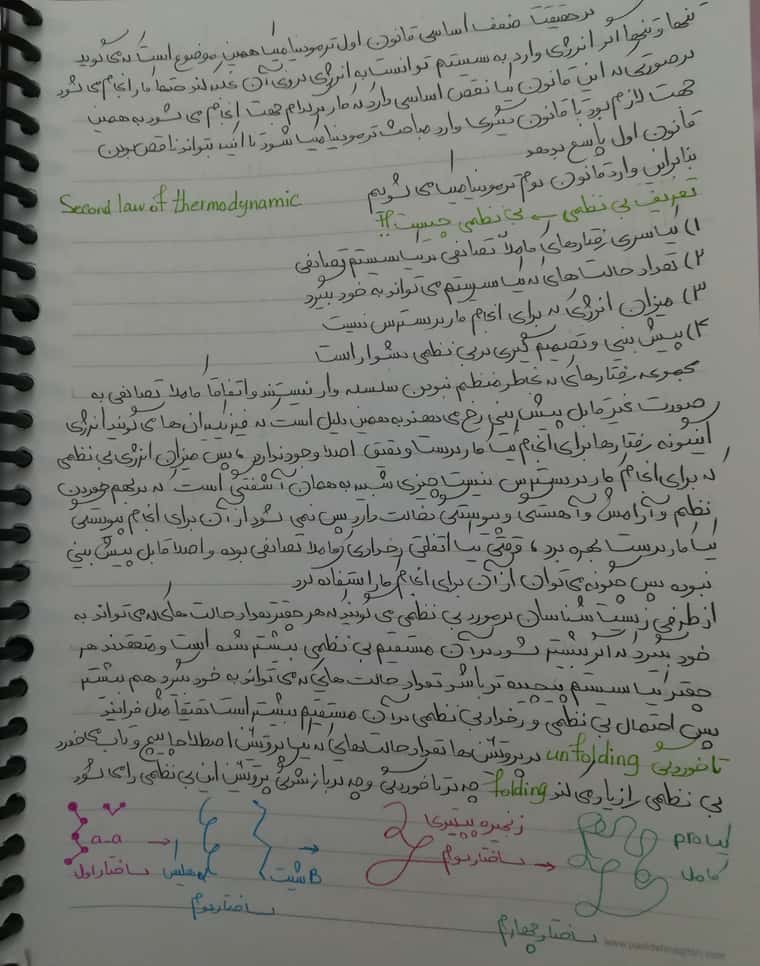 درحقیقت ضعف اساسی قانون اول ترمودینامیک همین موضوع است که می گوید
تنها و تنها اگر انرژی وارد به سیستم توانست به انرژی درونی آن غلبه کند حتما کار انجام می شود
درصورتی که این قانون یک نقص اساسی دارد که کار در کدام جهت انجام می شود به همین
جهت لازم بود تا قانون دیگری وارد مباحث ترمودینامیک شود تا اینکه بتواند ناقص بودن
قانون اول پاسخ بدهد
بنابراین وارد قانون دوم ترمودینامیک می شویم
Second law of thermodynamic
تعریف بی نظمی ← بی نظمی چیست؟!
۱) یک سری رفتارهای کاملاً تصادفی در یک سیستم تصادفی
۲) تعداد حالت های که یک سیستم می تواند به خود بگیرد
۳) میزان انرژی که برای انجام کار در دسترس نیست
۴) پیش بینی و تصمیم گیری در بی نظمی دشوار است
مجموعه رفتارهای که بخاطر منظم نبودن سلسله وار نیستند و اتفاقا کاملا تصادفی به
صورت غیر قابل پیش بینی رخ می دهند به همین دلیل است که فیزیکدان ها می گویند انرژی
اینگونه رفتارها برای انجام یک کار درست و دقیق اصلا وجود ندارد، پس میزان انرژی بی نظمی
که برای انجام کار در دسترس نیست چیزی شبیه به همان آشفتگی است که در بهم خوردن
نظم و آرامش و آهستگی و پیوستگی دخالت دارد پس نمی شود از آن برای انجام پیوستگی
یک کار درست بهره برد، وقتی یک اتفاقی رخدادی کاملا تصادفی بوده و اصلا قابل پیش بینی
نبوده پس چگونه می توان از آن برای انجام کار استفاده کرد
از طرفی زیست شناسان درمورد بی نظمی می گویند که هر چقدر تعداد حالت های که می تواند به
خود بگیرد که اگر بیشتر شود در آن مستقیم بی نظمی بیشتر شده است و معتقدند هر
چقدر یک سیستم پیچیده تر باشد تعداد حالت های که می تواند به خود بگیرد هم بیشتر
پس احتمال بی نظمی و رخداد بی نظمی در آن مستقیم بیشتر است دقیقا مثل فرایند
تاخوردگی unfolding در پروتئین ها تعداد حالت هایی که یک پروتئین اصطلاحا پیچ و تاب می خورد
بی نظمی را زیاد می کند folding چه در تاخوردگی و چه در بازشدگی پروتئین این بی نظمی را می شود
a-a
ساختار اول
هلیکس
شیت B
ساختار دوم
زنجیره پپتیدی
ساختار سوم
یک pro
کامل
ساختار چهارم